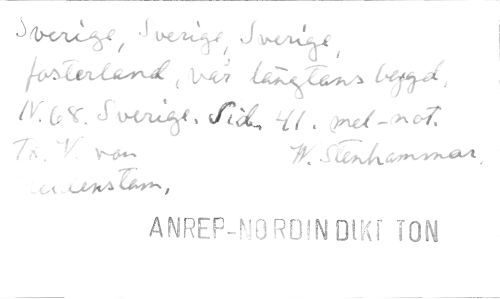 Sverige, Sverige, Sverige,
fosterland, vår längtans bygd,
N. 68. Sverige. Sid. 41. mel-not.
Tx. V. von W. Stenhammar.
ANREP-NORDIN DIKT TON